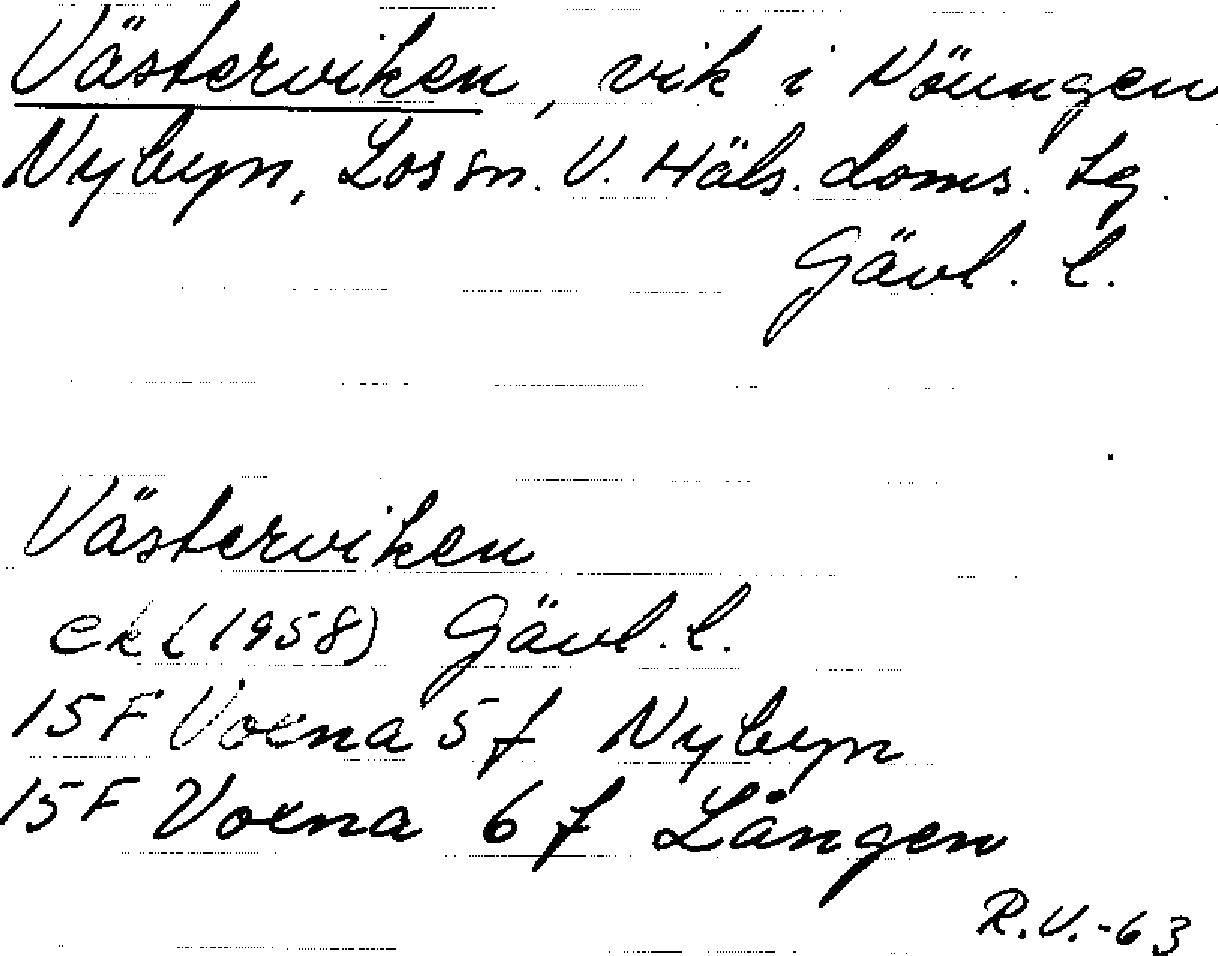 Västerviken, vik i Nöungen
Nybyn, Los sn. V. Häls. doms. tg.
Gävl. l.
Västerviken
ek (1958) Gävl. l.
15F Voxna 5f Nybyn
15F Voxna 6f Lången
R.V.-63